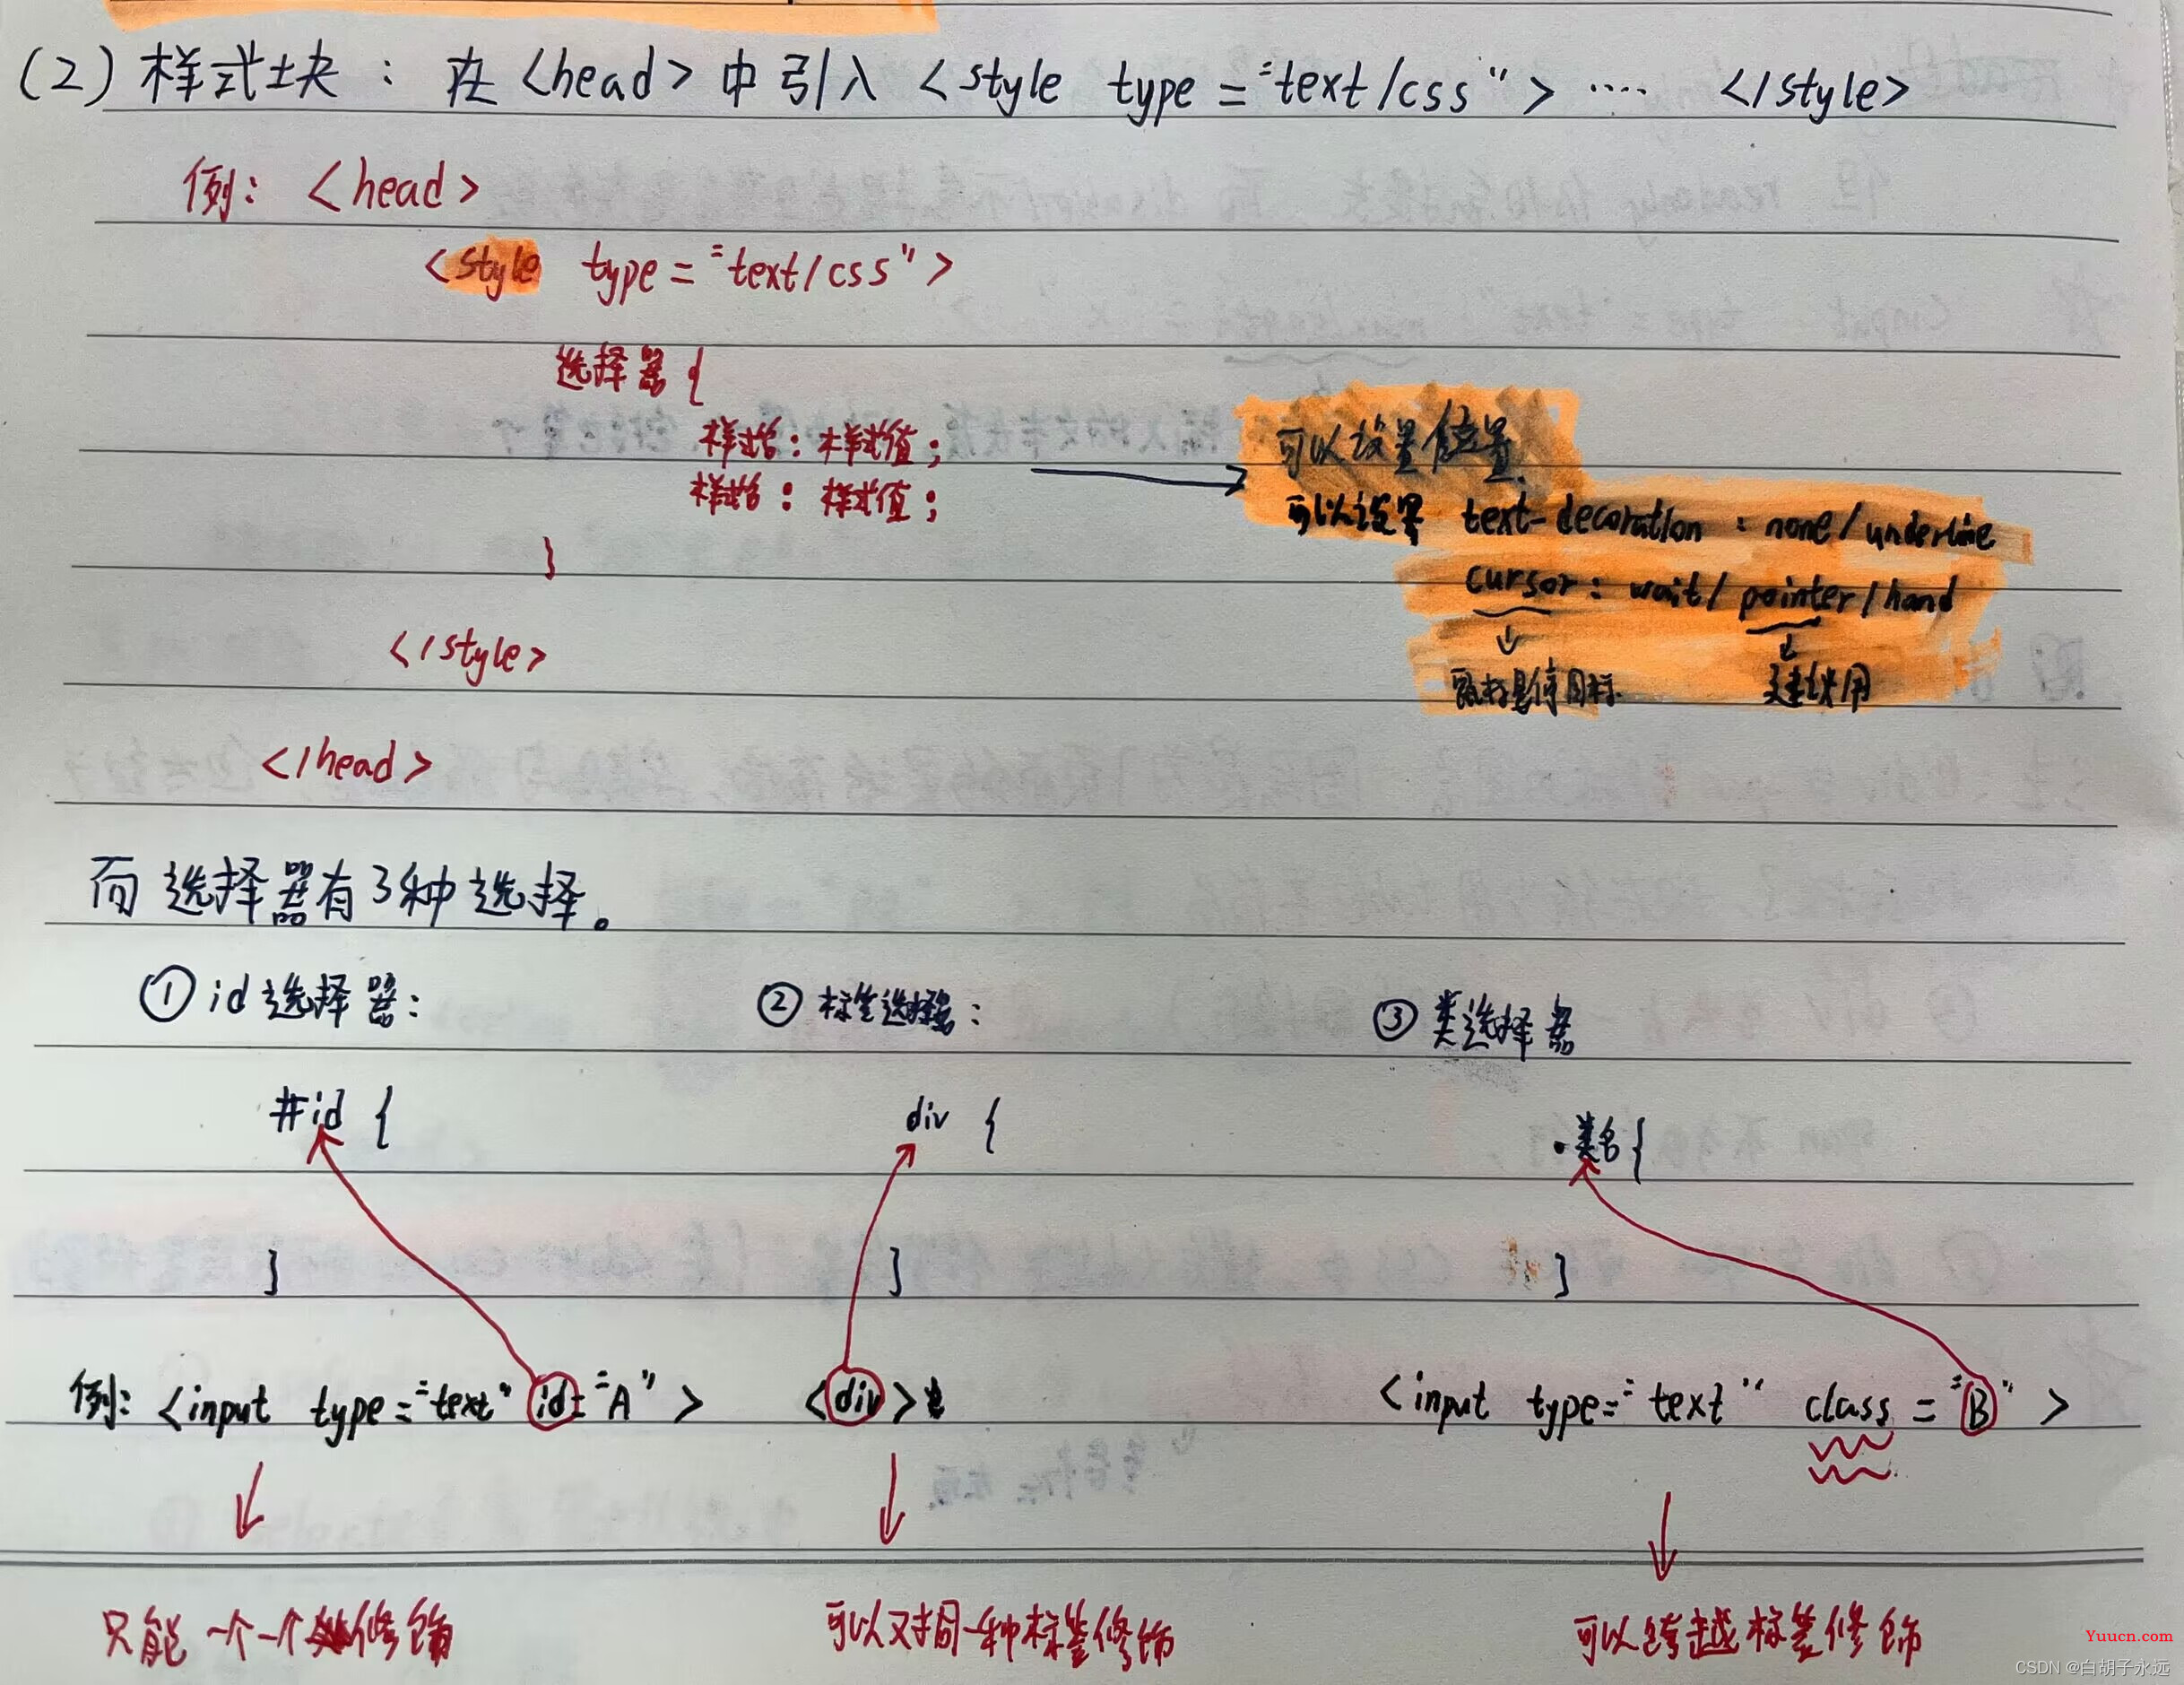 (2) 样式块：在<head>中引入<style type="text/css"> .... </style>
例：<head>
<style type="text/css">
选择器{
样式名：样式值；
样式名：样式值；
}
</style>
</head>
可以设置位置.
可以设置 text-decoration：none/underline
cursor：wait/pointer/hand
鼠标悬停图标. 建议用
而选择器有3种选择。
①id选择器： ②标签选择器： ③类选择器
#id { div { .类名{
} } }
例：<input type="text" id="A"> <div> <input type="text" class="B">
只能一个一个修饰 可以对同一种标签修饰 可以跨越标签修饰
Yuucn.com
CSDN @白胡子永远